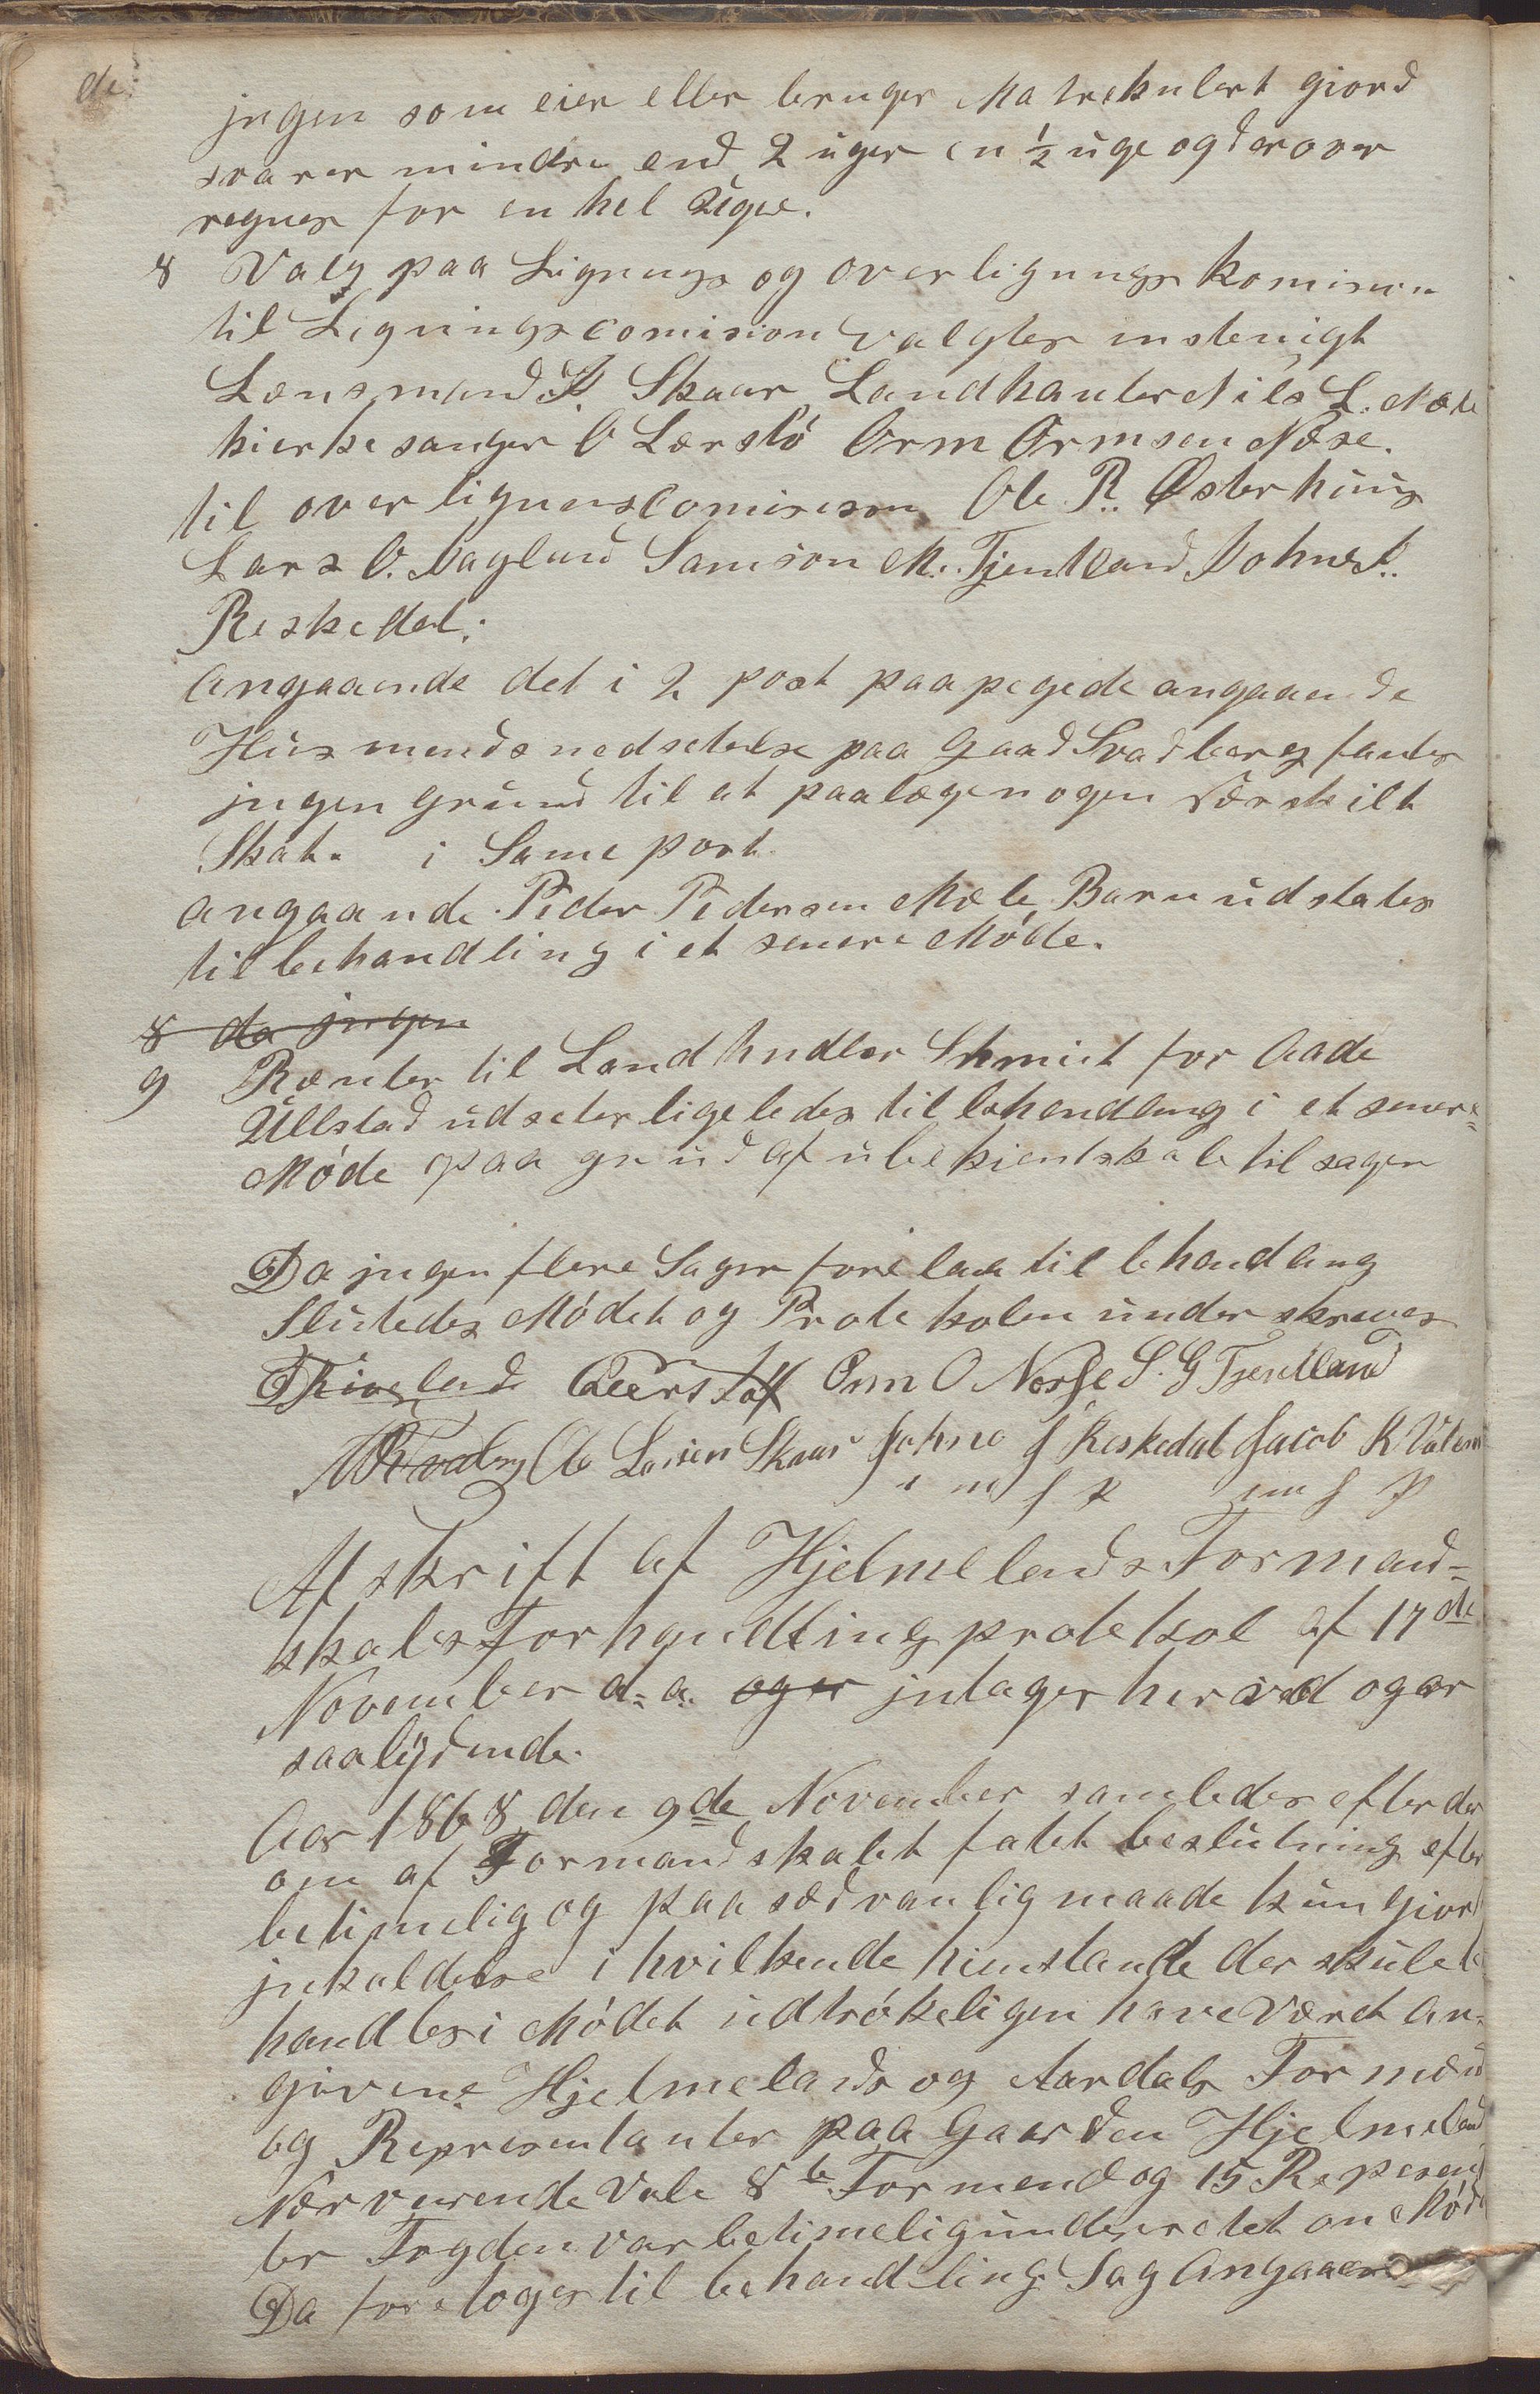 de
jngen som eier eller bruger Matrekulert giord
svarer mindre end 2 uger en ½ uge og derover
regnes for en hel Uge.
8 Valg paa Lignings og overlignings Komision
til Ligningscomision valgtes enstemigt
Lensmand J. Skaar Landhanler Nils L. Mæle
kierkesanger O Lærstö Orm Ormsen Nöse.
til overlignenscomision Ole R. Østerhuus
Lars O. Vaglund Samson M. Tjentland Johne J.
Reskedal.
Angaaende det i 2 post paapegede angaaende
Husmends nedsetelse paa Gaard Svadberg fantes
jngen grund til at paalægen ogen særskilt
Skat. i Same post
angaande Peder Pedersen Mæle Barn udstates
til behandling i et senere Möde.
8 da jngen
9 Rænter til Landhndler Schmidt for Aade
Ullstad udseter ligeledes til behendling i et senere
Möde paa grund af ubekientskab til sagen
Da jngen flere Sager forelaa til behandling
Slutedes Mödet og Protekolen underskreves
Orm O Nøsse S. G Tjentland
Ole Larsen Skaar Johne J Reskedal Jacob K Valem
m f P m f P
Afskrift af Hjelmelends Formand-
skabs Forhandling protekol af 17de
November d. a. og er jntages herved og er
saalydende.
Aar 1868 den 9de November samledes efter der
om af Formandskabet fatet beslutning efter
betimelig og paa sedvanlig maade kungiord
jnkaldelse i hvilkende hienstande der skule be
handles i Mödet udtrökeligen have været an-
givene Hjelmelands og Aardals Formænd
og Representanter paa Gaarden Hjelmeland
Nærverende vale 8te Formend og 15 Repesen
ter Fogden var betimelig underretet om Möde
Da foretoges til behandling Sag Angaaen